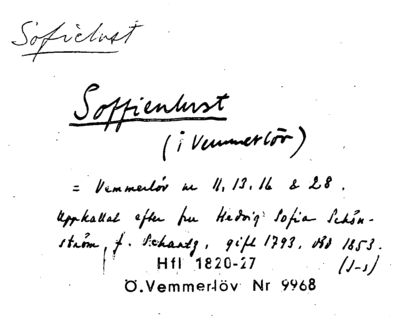 Sofielust
Soffienlust
(i Vemmerlöv)
= Vemmerlöv nr 11, 13, 16 & 28.
Uppkallat efter fru Hedvig Sofia Schön-
ström, f. Schantz, gift 1793, död 1853.
Hfl 1820-27 (J-s)
Ö.Vemmerlöv Nr 9968